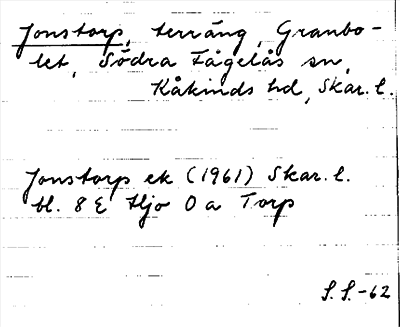 Jonstorp, terräng, Granbo-
let, Södra Fågelås sn,
Kåkinds hd, Skar. l.
Jonstorp ek (1961) Skar. l.
bl. 8 E Hjo 0 a Torp
S. S. -62